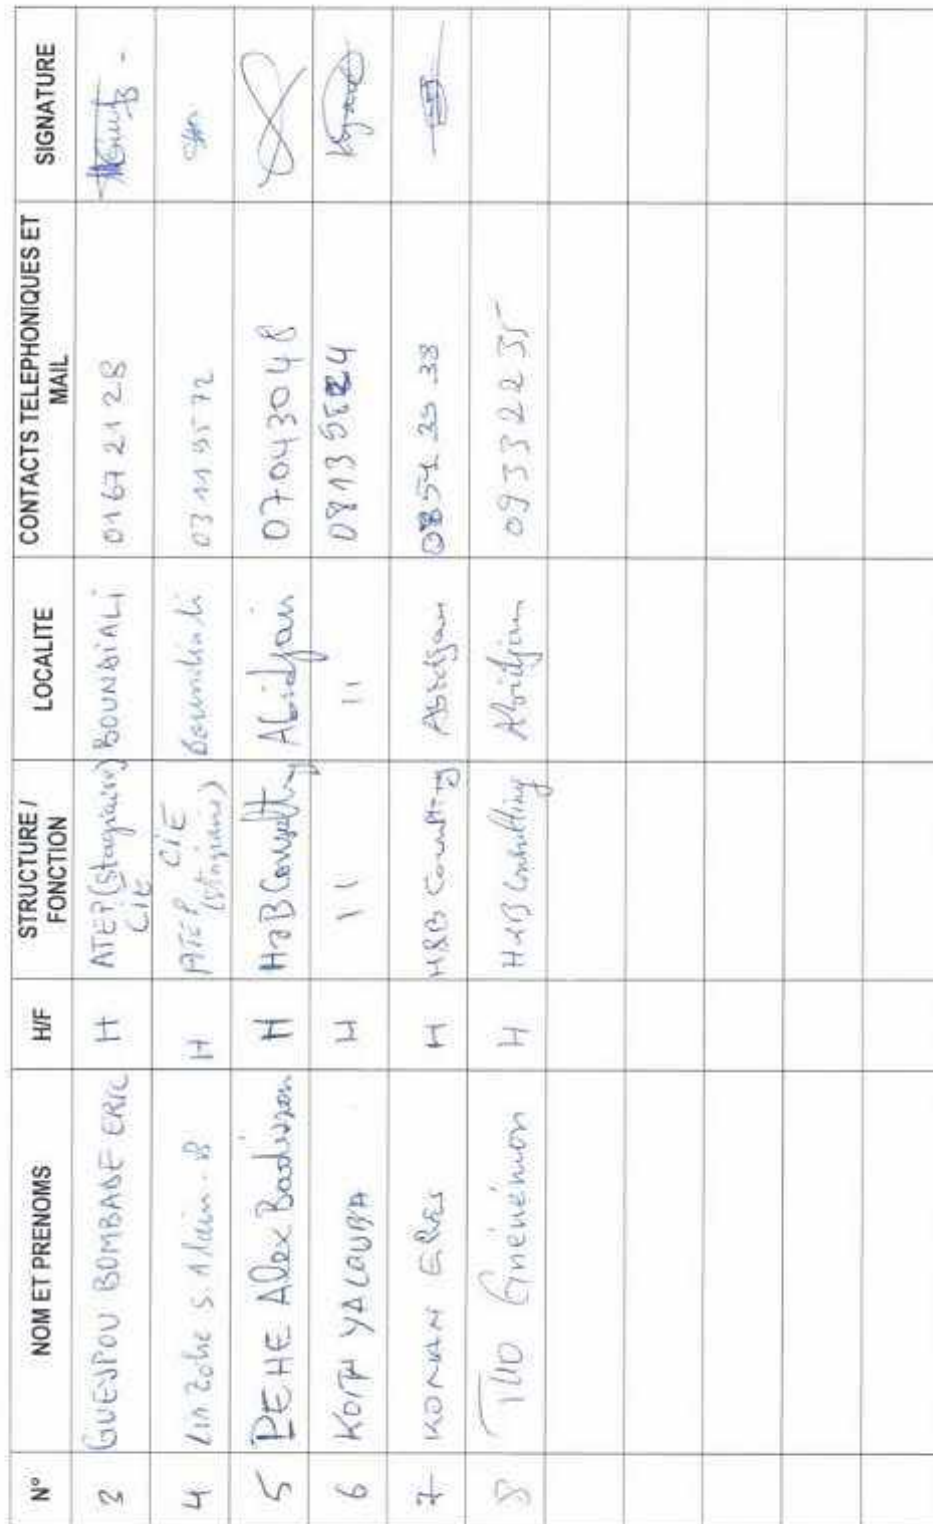 N° NOM ET PRENOMS H/F STRUCTURE / FONCTION LOCALITE CONTACTS TELEPHONIQUES ET MAIL SIGNATURE
3 GUESPOU BOMBADE ERIC H ATEP (Stagiaire) CIE BOUNDIALI 01 67 21 28
4 S. Alain . B H ATEP CIE (stagiaire) Boundiali 03 11 95 72
5 PEHE Alex Badisson H H&B Consulting Abidjan 07043048
6 KOITA YACOUBA H 11 11 0813
7 KONAN H H&B Consulting Abidjan 0854 25 38
8 TUO Gnénémon H H&B Consulting Abidjan 09332235